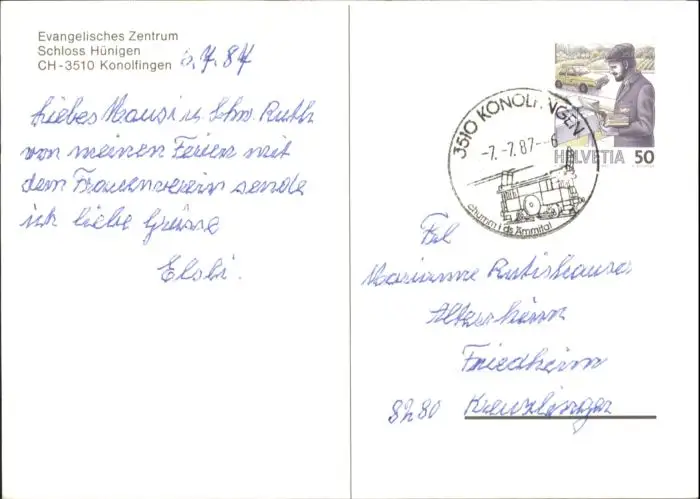 Evangelisches Zentrum
Schloss Hünigen
CH-3510 Konolfingen
6.7.87
Liebes Mausi u. Schw. Ruth
von meinen Ferien mit
dem Frauenverein sende
ich liebe Grüsse
Elsbi.
3510 KONOLFINGEN
-7.-7.87.-6
chumm i ds Ämmital
HELVETIA 50
Frl
Marianne Rutishauser
Altersheim
Friedheim
8280 Kreuzlingen